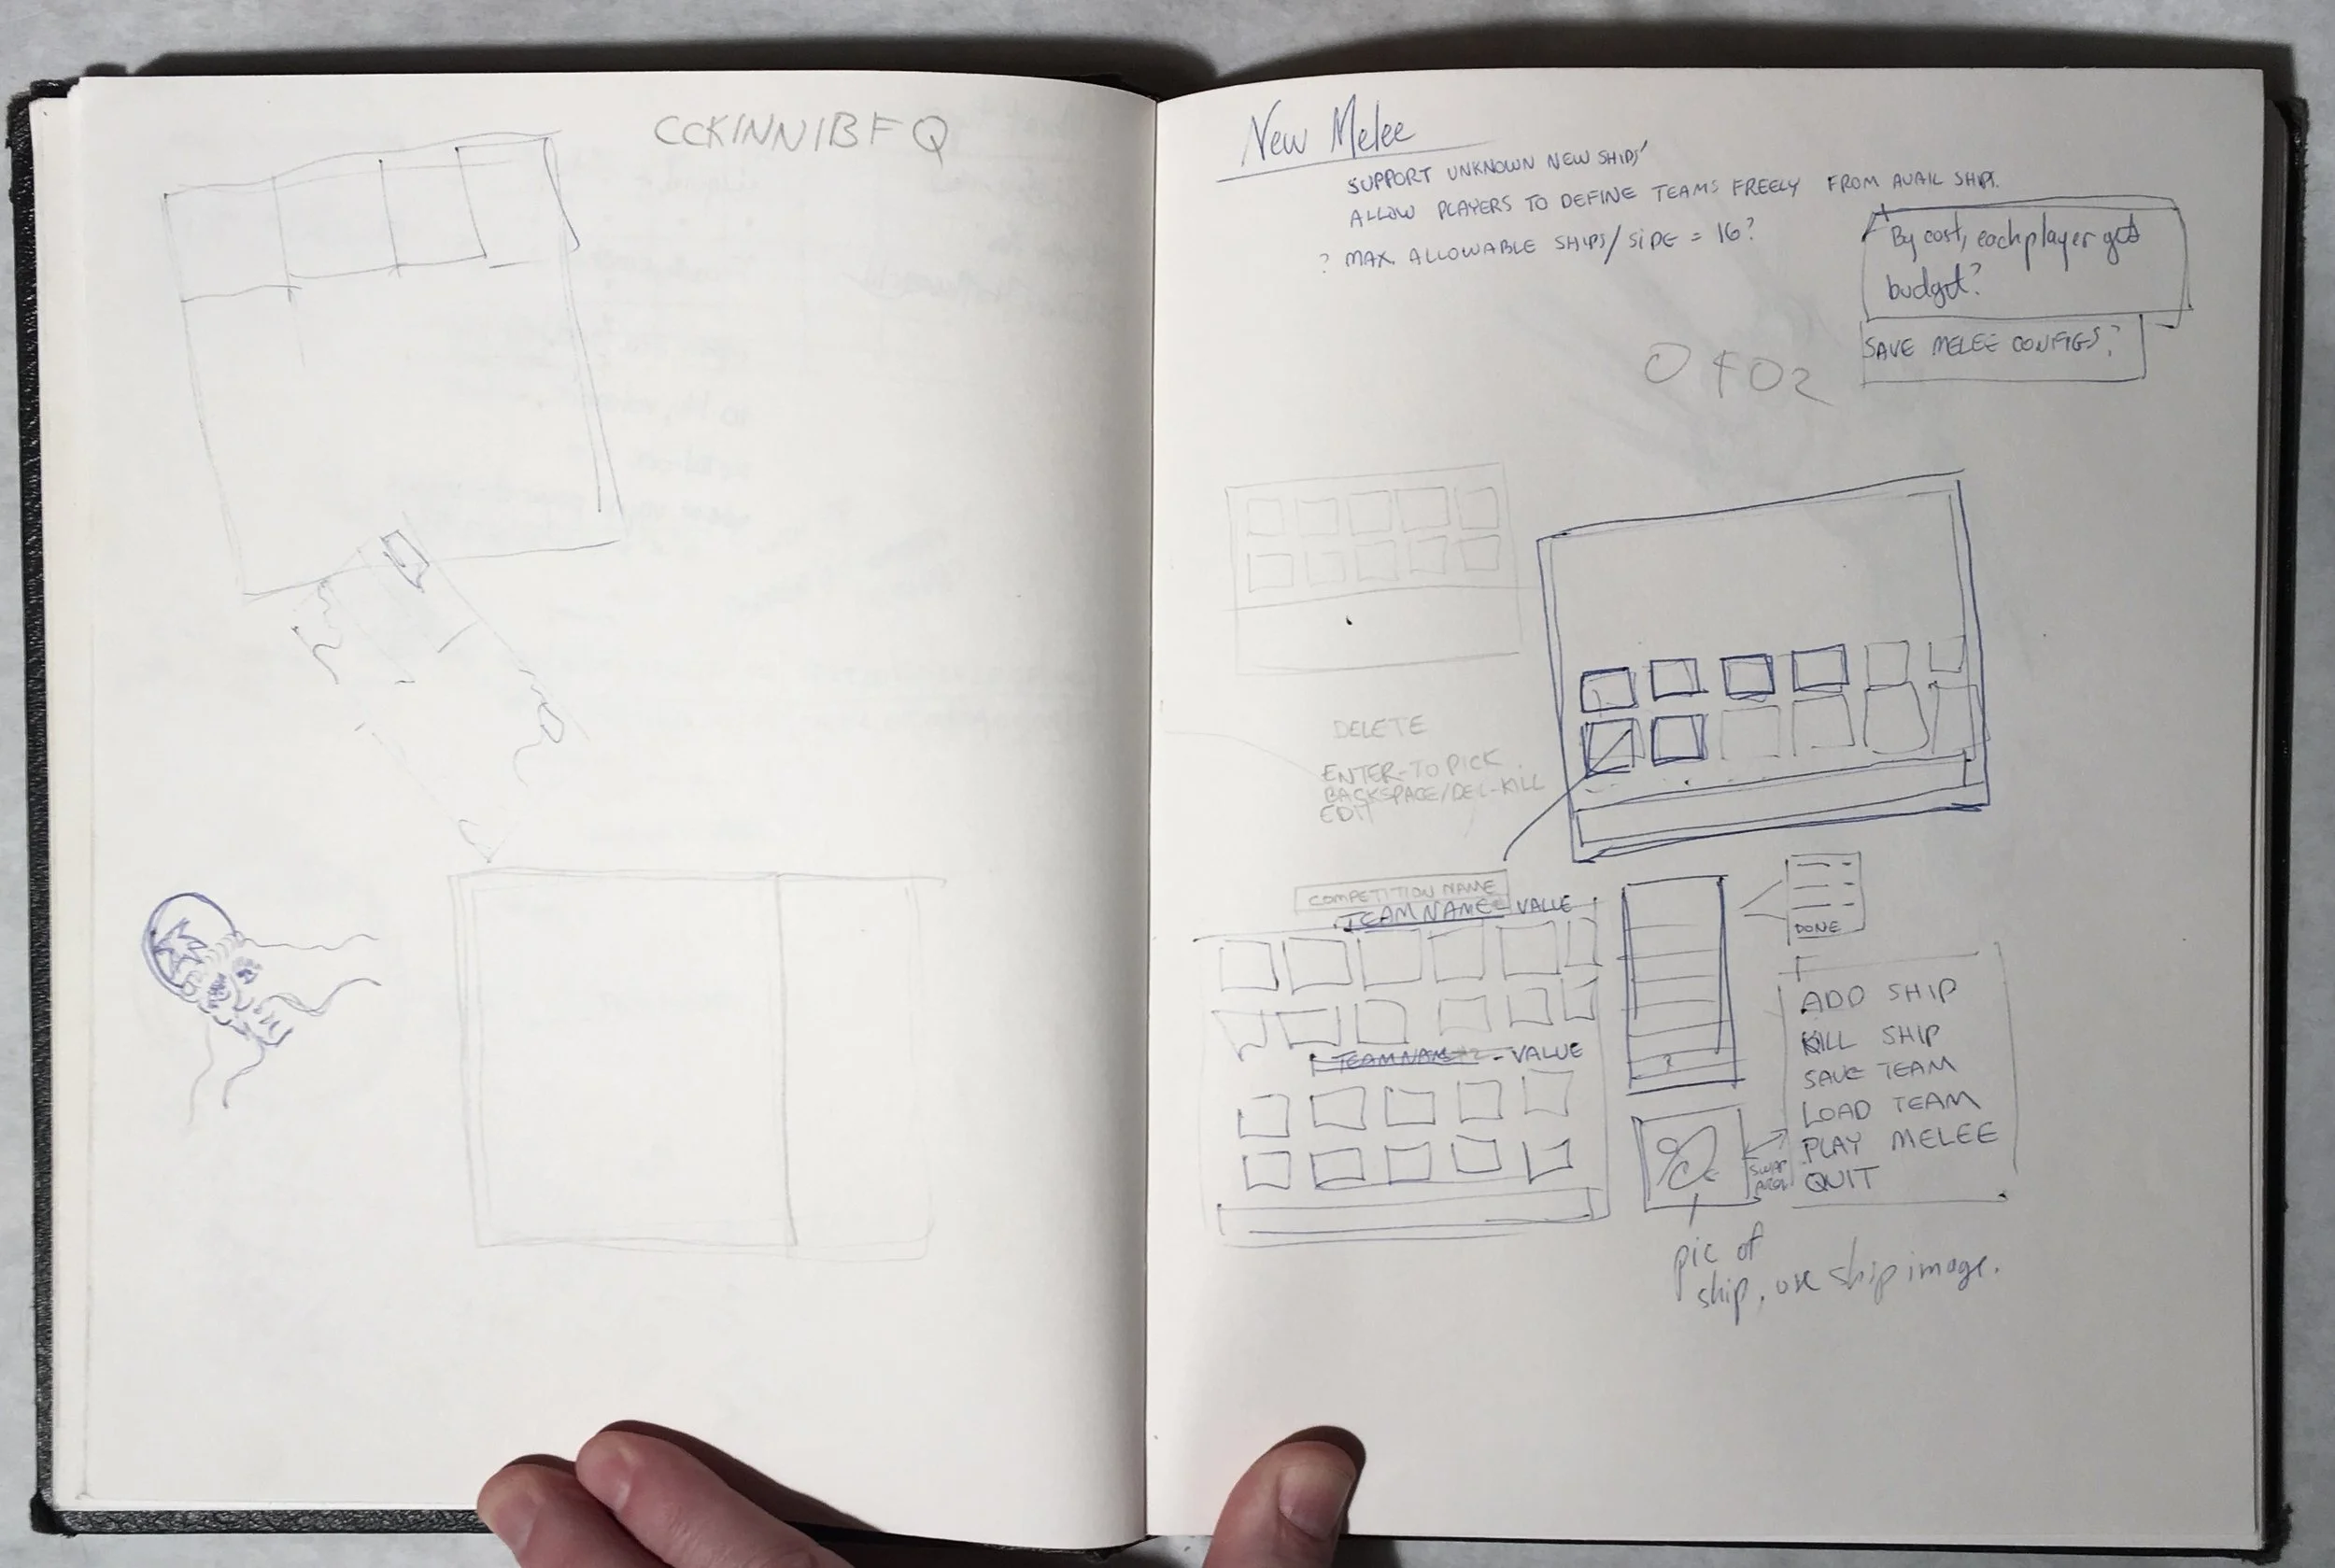 CCKINNIBFQ
New Melee
SUPPORT UNKNOWN NEW SHIPS
ALLOW PLAYERS TO DEFINE TEAMS FREELY FROM AVAIL SHIPS.
? MAX. ALLOWABLE SHIPS/SIDE = 16?
By cost, each player gets
budget?
SAVE MELEE CONFIGS?
DELETE
ENTER-TO PICK
BACKSPACE/DEL-KILL
EDIT
COMPETITION NAME
TEAM NAME - VALUE
DONE
ADD SHIP
KILL SHIP
SAVE TEAM
LOAD TEAM
PLAY MELEE
QUIT
TEAM NAME 2 - VALUE
?
SWAP
AREA
pic of
ship, use ship image.